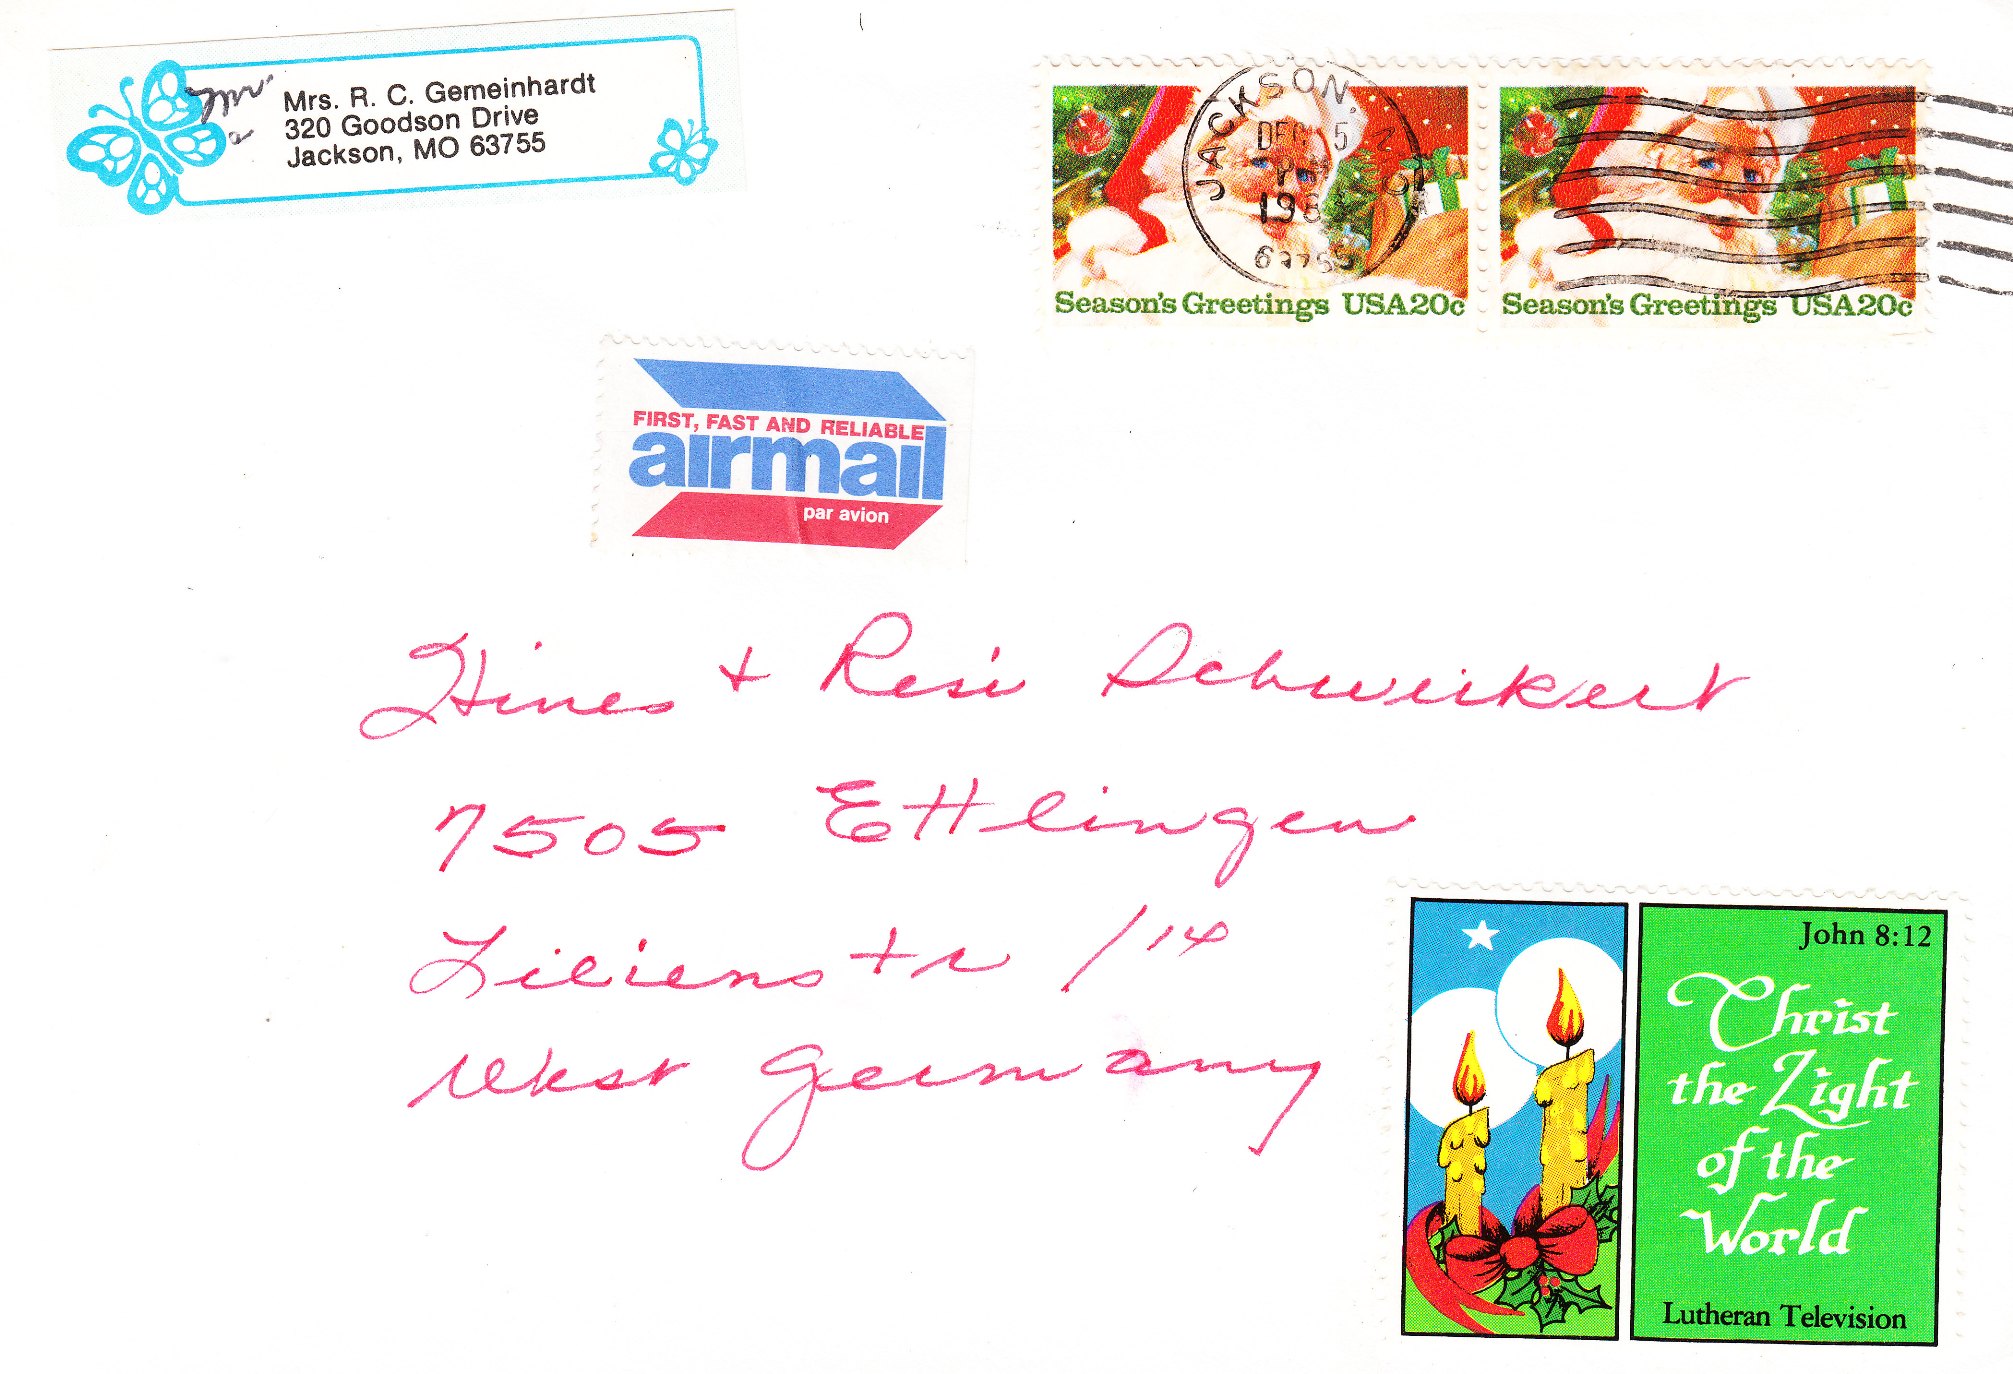 Mr.
Mrs. R. C. Gemeinhardt
320 Goodson Drive
Jackson, MO 63755
JACKSON, MO
DEC 5
PM
198
63755
Season's Greetings USA20c
Season's Greetings USA20c
FIRST, FAST AND RELIABLE
airmail
par avion
Hines + Resi Schweikert
7505 Ettlingen
Lilienstr 114
West Germany
John 8:12
Christ
the Light
of the
World
Lutheran Television